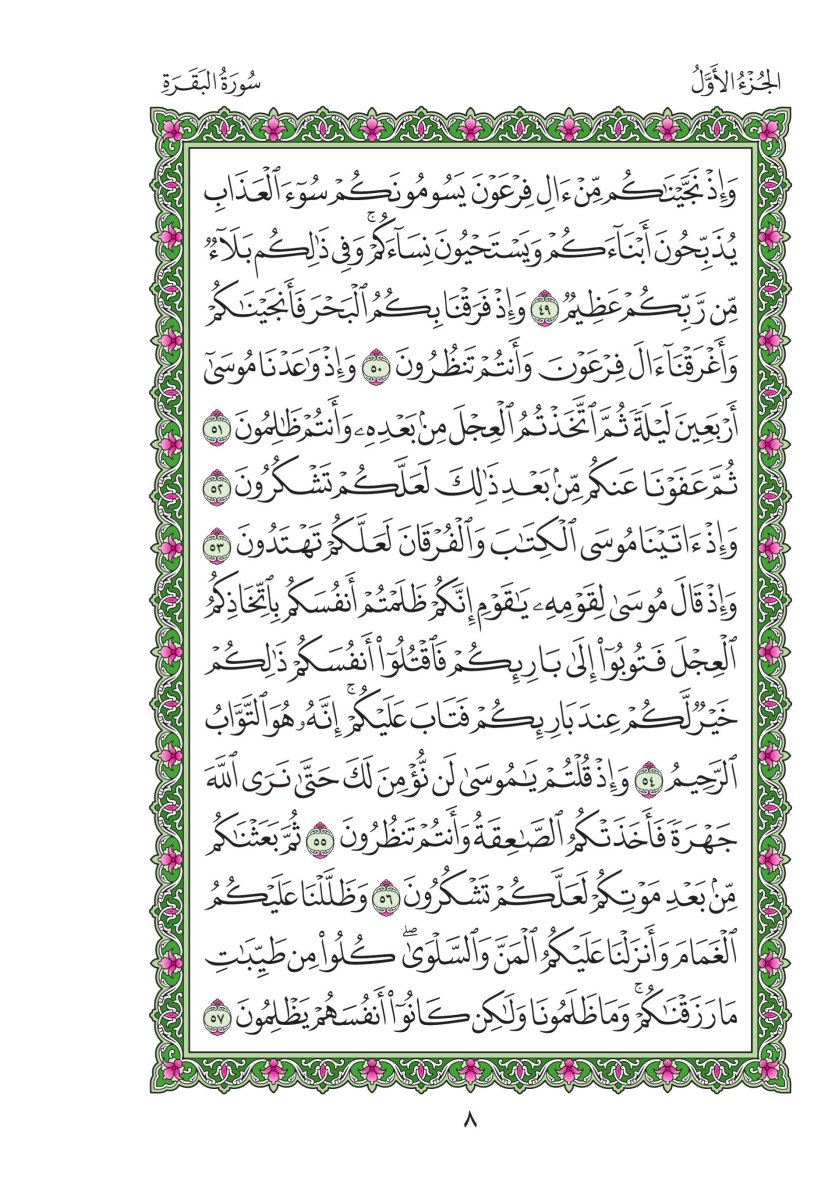 الجُزْءُ الأَوَّلُ
سُورَةُ البَقَرَةِ
وَإِذْ نَجَّيْنَٰكُم مِّنْ ءَالِ فِرْعَوْنَ يَسُومُونَكُمْ سُوٓءَ ٱلْعَذَابِ
يُذَبِّحُونَ أَبْنَآءَكُمْ وَيَسْتَحْيُونَ نِسَآءَكُمْ ۚ وَفِى ذَٰلِكُم بَلَآءٌ
مِّن رَّبِّكُمْ عَظِيمٌ ٤٩ وَإِذْ فَرَقْنَا بِكُمُ ٱلْبَحْرَ فَأَنجَيْنَٰكُمْ
وَأَغْرَقْنَآ ءَالَ فِرْعَوْنَ وَأَنتُمْ تَنظُرُونَ ٥٠ وَإِذْ وَٰعَدْنَا مُوسَىٰٓ
أَرْبَعِينَ لَيْلَةً ثُمَّ ٱتَّخَذْتُمُ ٱلْعِجْلَ مِنۢ بَعْدِهِۦ وَأَنتُمْ ظَٰلِمُونَ ٥١
ثُمَّ عَفَوْنَا عَنكُم مِّنۢ بَعْدِ ذَٰلِكَ لَعَلَّكُمْ تَشْكُرُونَ ٥٢
وَإِذْ ءَاتَيْنَا مُوسَى ٱلْكِتَٰبَ وَٱلْفُرْقَانَ لَعَلَّكُمْ تَهْتَدُونَ ٥٣
وَإِذْ قَالَ مُوسَىٰ لِقَوْمِهِۦ يَٰقَوْمِ إِنَّكُمْ ظَلَمْتُمْ أَنفُسَكُم بِٱتِّخَاذِكُمُ
ٱلْعِجْلَ فَتُوبُوٓا۟ إِلَىٰ بَارِئِكُمْ فَٱقْتُلُوٓا۟ أَنفُسَكُمْ ذَٰلِكُمْ
خَيْرٌ لَّكُمْ عِندَ بَارِئِكُمْ فَتَابَ عَلَيْكُمْ ۚ إِنَّهُۥ هُوَ ٱلتَّوَّابُ
ٱلرَّحِيمُ ٥٤ وَإِذْ قُلْتُمْ يَٰمُوسَىٰ لَن نُّؤْمِنَ لَكَ حَتَّىٰ نَرَى ٱللَّهَ
جَهْرَةً فَأَخَذَتْكُمُ ٱلصَّٰعِقَةُ وَأَنتُمْ تَنظُرُونَ ٥٥ ثُمَّ بَعَثْنَٰكُم
مِّنۢ بَعْدِ مَوْتِكُمْ لَعَلَّكُمْ تَشْكُرُونَ ٥٦ وَظَلَّلْنَا عَلَيْكُمُ
ٱلْغَمَامَ وَأَنزَلْنَا عَلَيْكُمُ ٱلْمَنَّ وَٱلسَّلْوَىٰ ۖ كُلُوا۟ مِن طَيِّبَٰتِ
مَا رَزَقْنَٰكُمْ ۚ وَمَا ظَلَمُونَا وَلَٰكِن كَانُوٓا۟ أَنفُسَهُمْ يَظْلِمُونَ ٥٧
٨